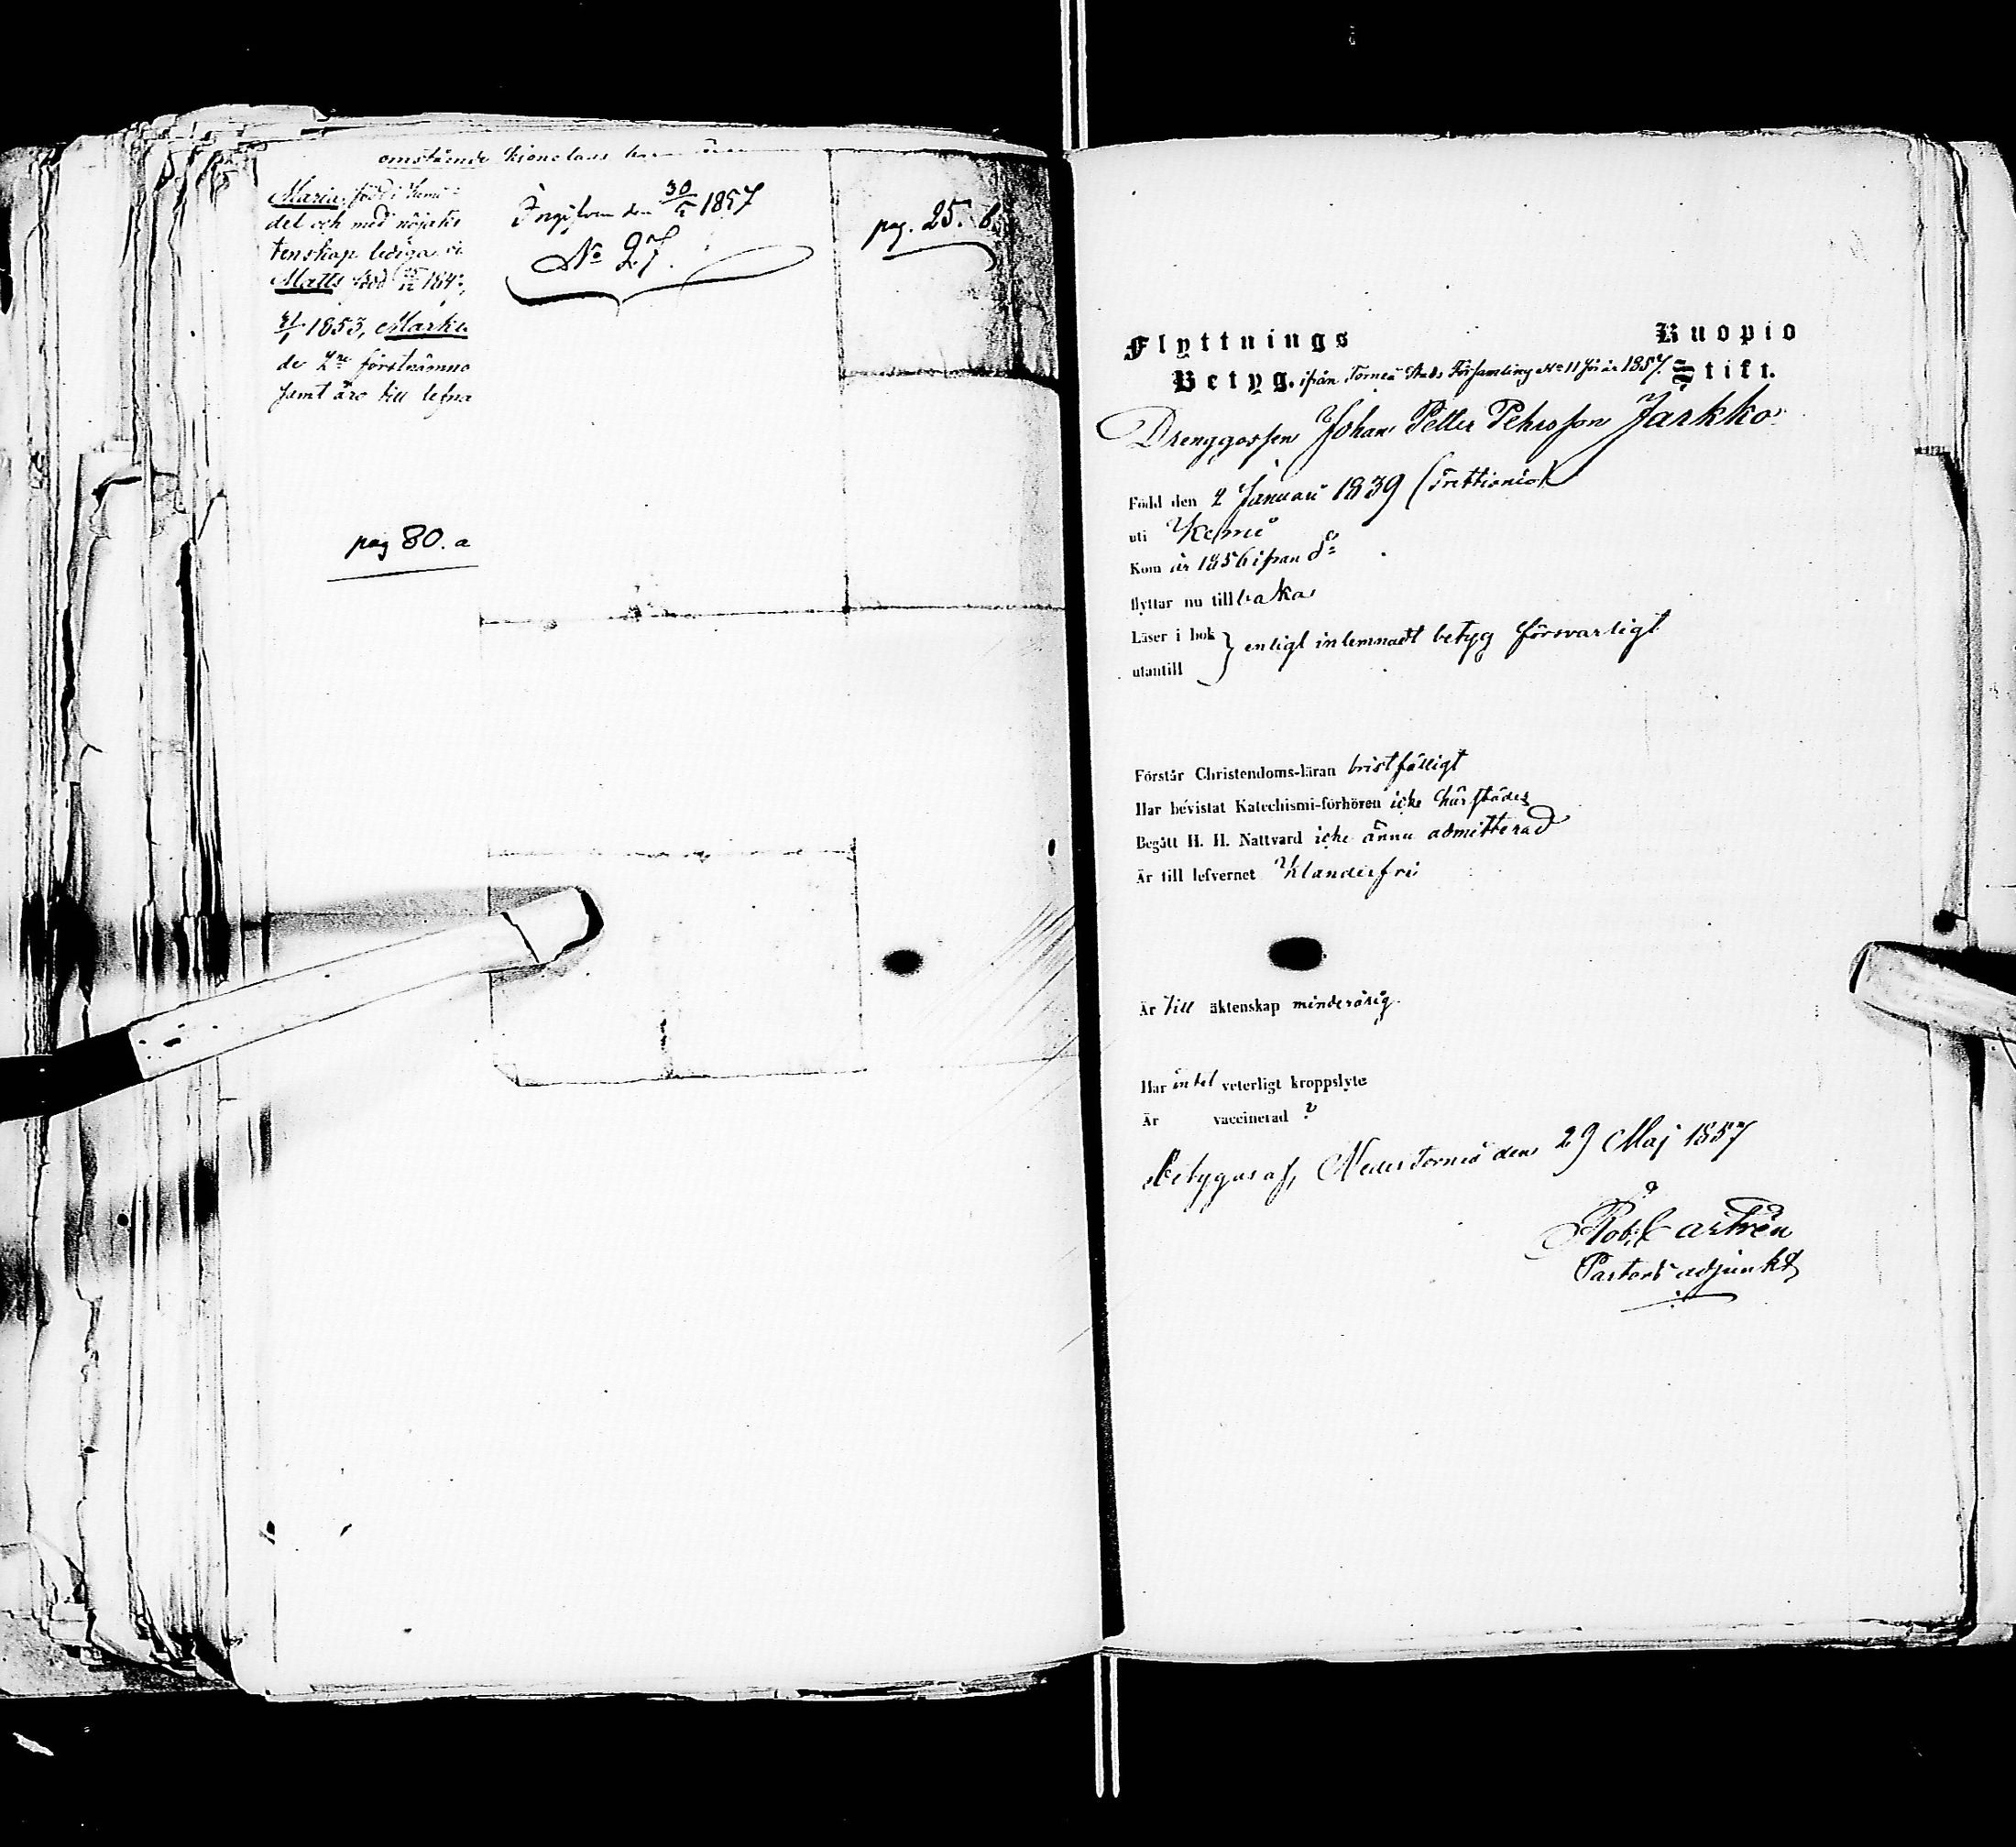 omstående
Maria, född i Kemi
del och med nöjaktig
tenskap lediga
Matts född 184
1853, Marku
de förstnämnd
samt äro till lefna
pag 80. a
Ingifven den 30/5 1857
No 27.
pag. 25. b.
Flyttnings Kuopio
Betyg. ifrån Torneå Stads Församling No 11 för år 1857. Stift.
Drenggossen Johan Petter Pehrsson Jarkko
Född den 2 Januari 1839 (Trettionio)
uti Kemi
Kom år 1856 ifrån do
flyttar nu tillbaka
Läser i bok } enligt inlemnadt betyg försvarligt
utantill
Förstår Christendoms-läran bristfälligt
Har bevistat Katechismi-förhören icke härstädes
Begått H. H. Nattvard icke ännu admitterad
Är till lefvernet Klanderfri
Är till äktenskap minderårig.
Har intet veterligt kroppslyte
Är vaccinerad ?
Betygas af, Neder Torneå den 29 Maj 1857
Rob. Castrén
Pastors adjunkt